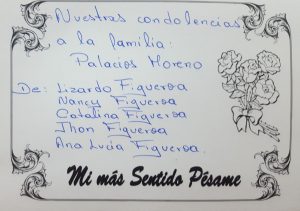 Nuestras condolencias
a la familia:
Palacios Moreno
De: Lizardo Figueroa
Nancy Figueroa
Catalina Figueroa
Jhon Figueroa
Ana Lucia Figueroa.
Mi más Sentido Pésame